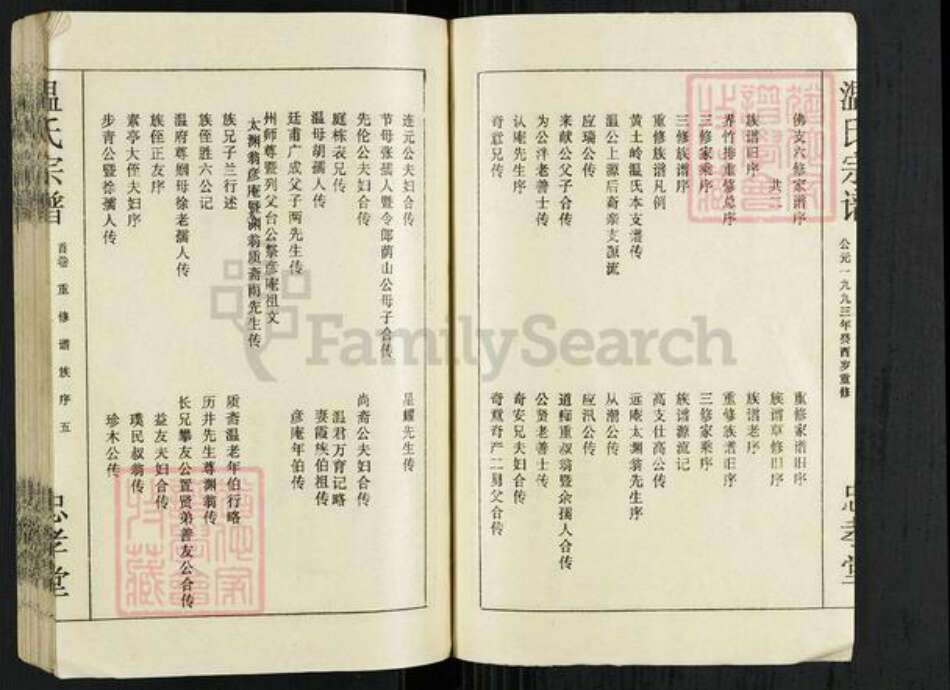 温氏宗谱
公元一九九三年癸酉岁重修
忠孝堂
佛支六修家谱序
共二
族谱旧序
界竹排重修总序
三修家乘序
三修族谱序
重修族谱凡例
黄土岭温氏本支谱传
温公上源后裔亲支源流
应瑞公传
来献公父子合传
为公泮老善士传
认庵先生序
奇意兄传
重修家谱旧序
族谱草修旧序
族谱老序
重修族谱旧序
三修家乘序
族谱源流记
高支仕高公传
远庵太渊翁先生序
从潮公传
应汛公传
道痴重叔翁暨余孺人合传
公贤老善士传
奇安兄夫妇合传
奇意奇产二舅父合传
连元公夫妇合传
节母张孺人暨令郎荫山公母子合传
先伦公夫妇合传
庭栋表兄传
温母胡孺人传
廷甫广成父子两先生传
州师尊暨列父台公祭彦庵祖文
太渊翁彦庵暨渊翁质斋两先生传
族兄子兰行述
族侄胜六公记
温府尊姻母徐老孺人传
族侄正友序
素亭大侄夫妇序
步青公暨徐孺人传
星耀先生传
尚斋公夫妇合传
温君万育记略
妻霞族伯祖传
彦庵年伯传
质斋温老年伯行略
历井先生尊渊翁传
长兄攀友公置贤弟善友公合传
益友夫妇合传
璞民叔翁传
珍木公传
温氏宗谱
首卷 重修谱族序 五
忠孝堂
FamilySearch